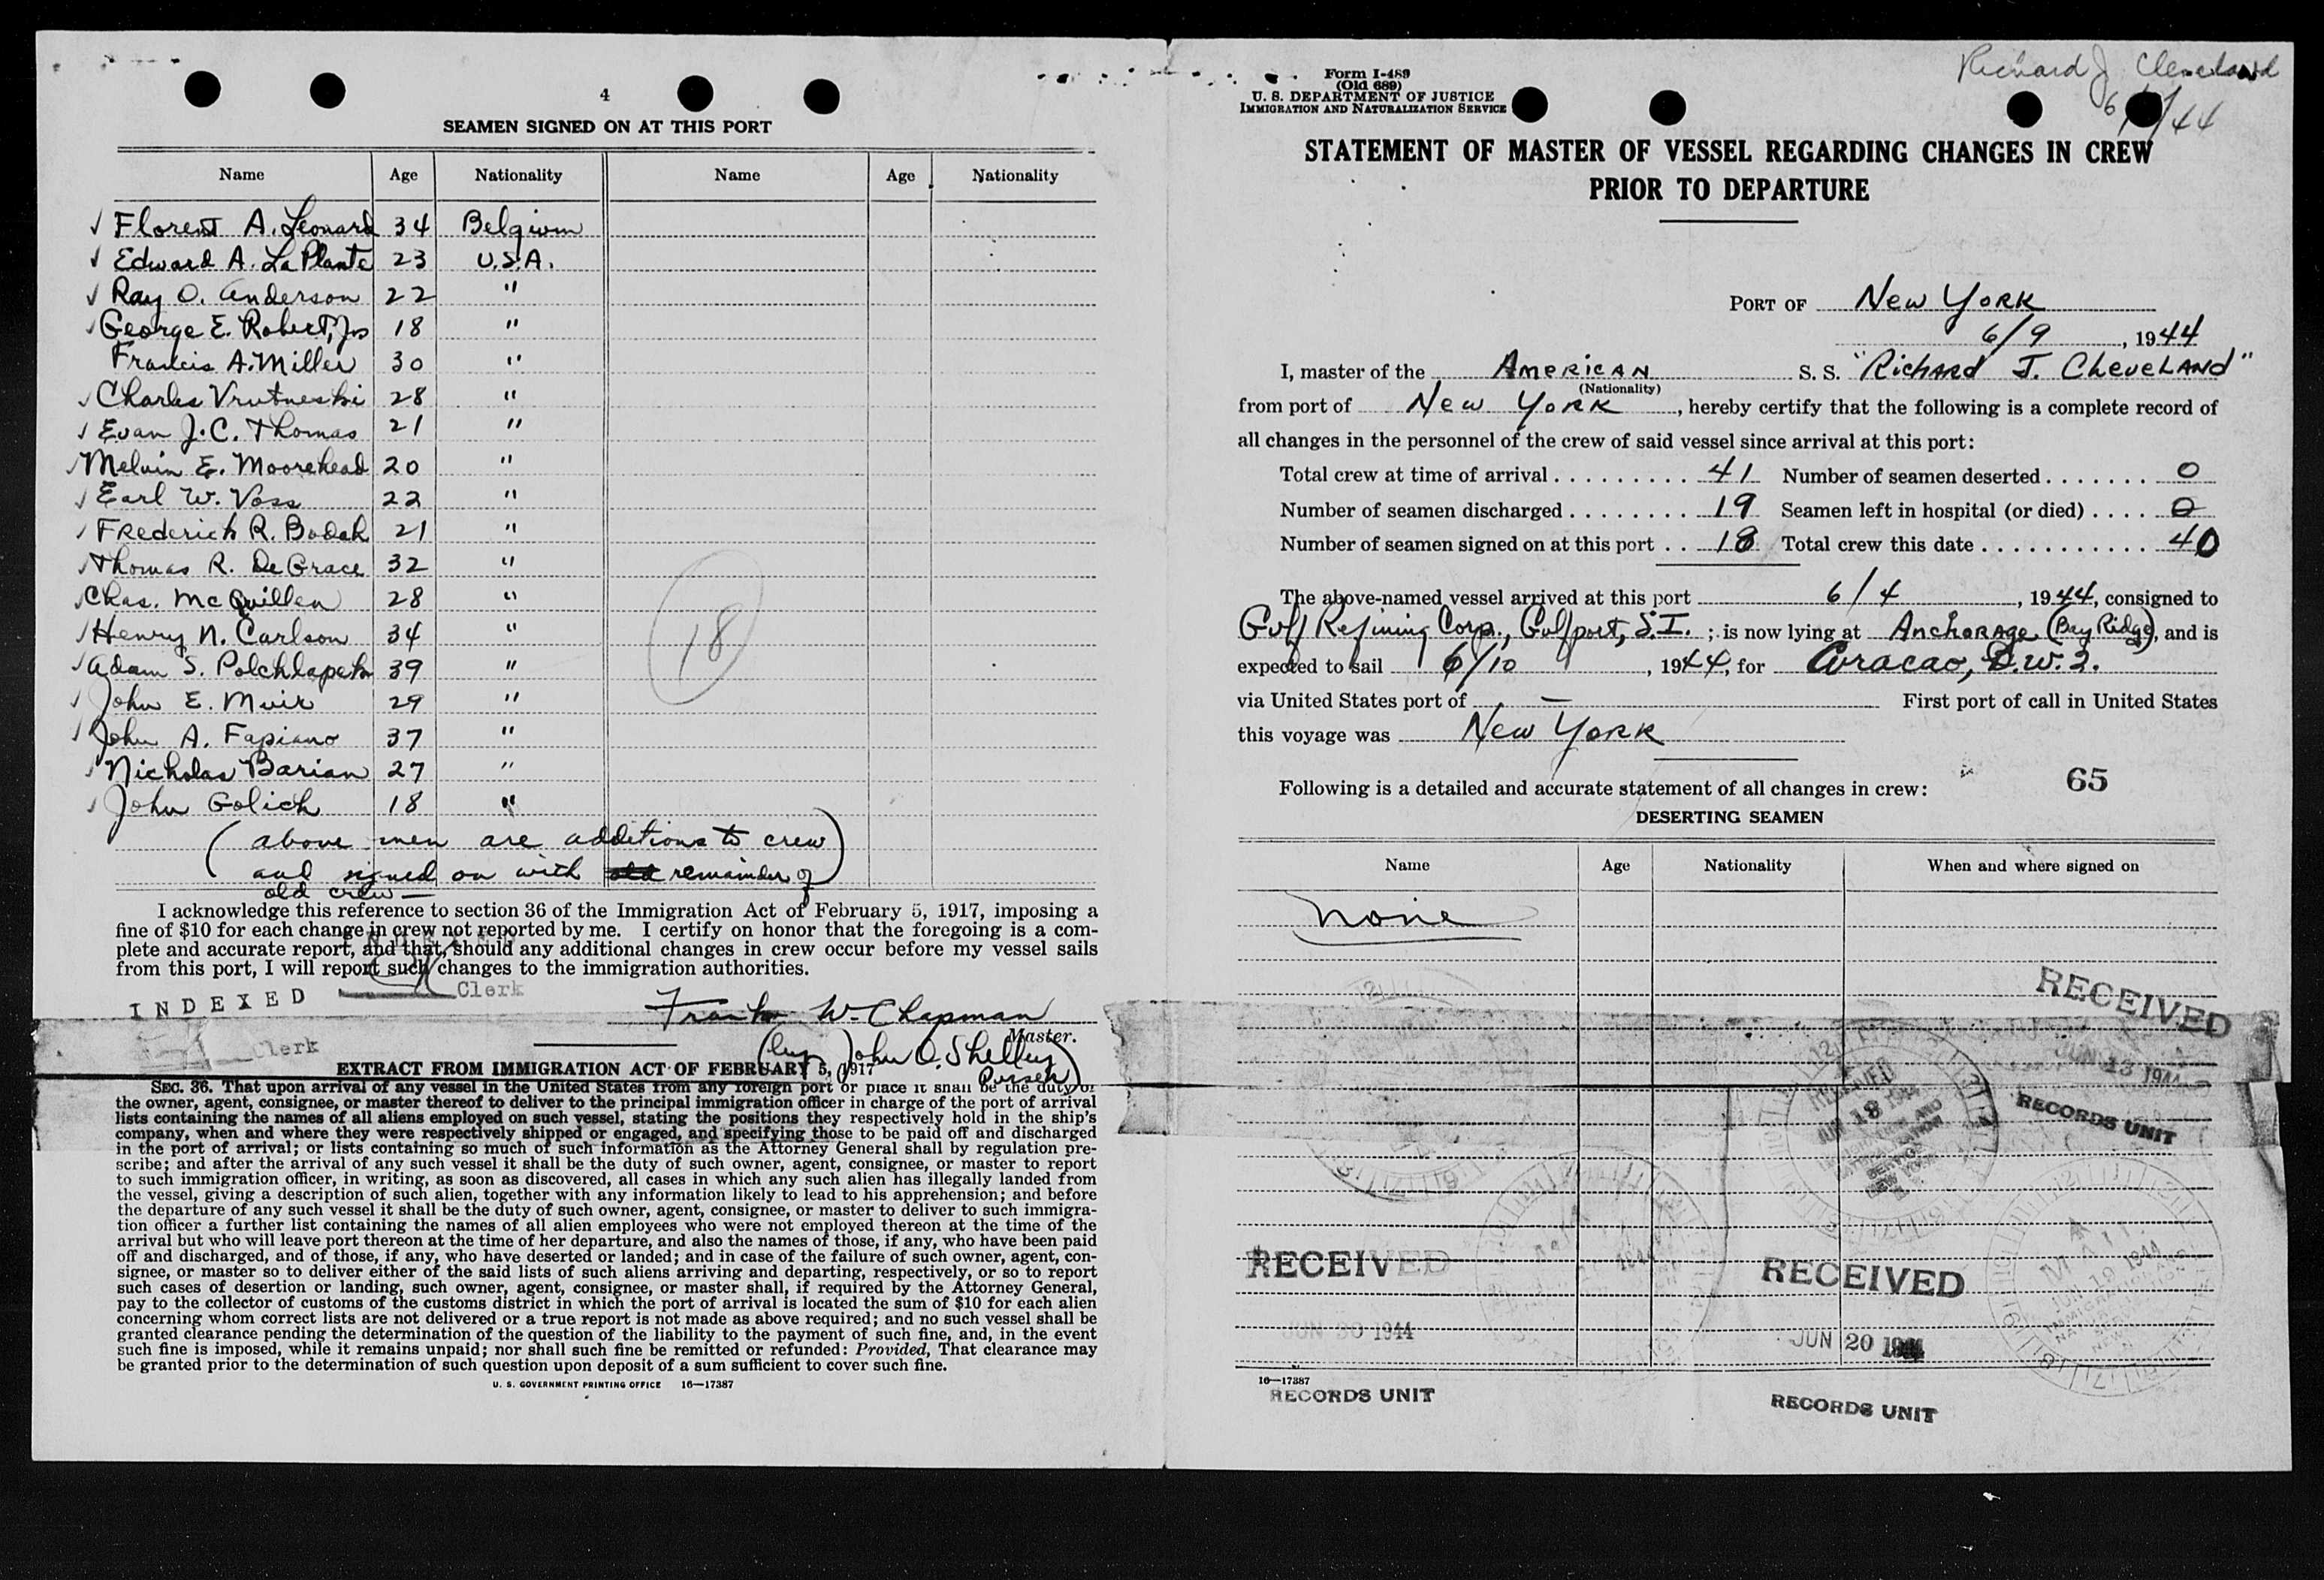 4
SEAMEN SIGNED ON AT THIS PORT
Name Age Nationality Name Age Nationality
✓ Florent A. Leonard 34 Belgium
✓ Edward A. LaPlante 23 U.S.A.
✓ Ray O. Anderson 22 "
✓ George E. Robert, Jr. 18 "
Francis A. Miller 30 "
✓ Charles Vrutneski 28 "
✓ Evan J.C. Thomas 21 "
✓ Melvin E. Moorehead 20 "
✓ Earl W. Voss 22 "
✓ Frederick R. Bodak 21 "
✓ Thomas R. DeGrace 32 "
✓ Chas. McQuillen 28 "
✓ Henry N. Carlson 34 "
✓ Adam S. Polchlapek 39 "
✓ John E. Muir 29 "
✓ John A. Fapiano 37 "
✓ Nicholas Barian 27 "
✓ John Golich 18 "
18
(above men are additions to crew
and signed on with old remainder of)
old crew —
I acknowledge this reference to section 36 of the Immigration Act of February 5, 1917, imposing a
fine of $10 for each change in crew not reported by me. I certify on honor that the foregoing is a com-
plete and accurate report, and that, should any additional changes in crew occur before my vessel sails
from this port, I will report such changes to the immigration authorities.
INDEXED
INDEXED Clerk
Frank W. Chapman
Master.
Clerk
(by John O. Shelley
Purser)
EXTRACT FROM IMMIGRATION ACT OF FEBRUARY 5, 1917
SEC. 36. That upon arrival of any vessel in the United States from any foreign port or place it shall be the duty of
the owner, agent, consignee, or master thereof to deliver to the principal immigration officer in charge of the port of arrival
lists containing the names of all aliens employed on such vessel, stating the positions they respectively hold in the ship's
company, when and where they were respectively shipped or engaged, and specifying those to be paid off and discharged
in the port of arrival; or lists containing so much of such information as the Attorney General shall by regulation pre-
scribe; and after the arrival of any such vessel it shall be the duty of such owner, agent, consignee, or master to report
to such immigration officer, in writing, as soon as discovered, all cases in which any such alien has illegally landed from
the vessel, giving a description of such alien, together with any information likely to lead to his apprehension; and before
the departure of any such vessel it shall be the duty of such owner, agent, consignee, or master to deliver to such immigra-
tion officer a further list containing the names of all alien employees who were not employed thereon at the time of the
arrival but who will leave port thereon at the time of her departure, and also the names of those, if any, who have been paid
off and discharged, and of those, if any, who have deserted or landed; and in case of the failure of such owner, agent, con-
signee, or master so to deliver either of the said lists of such aliens arriving and departing, respectively, or so to report
such cases of desertion or landing, such owner, agent, consignee, or master shall, if required by the Attorney General,
pay to the collector of customs of the customs district in which the port of arrival is located the sum of $10 for each alien
concerning whom correct lists are not delivered or a true report is not made as above required; and no such vessel shall be
granted clearance pending the determination of the question of the liability to the payment of such fine, and, in the event
such fine is imposed, while it remains unpaid; nor shall such fine be remitted or refunded: Provided, That clearance may
be granted prior to the determination of such question upon deposit of a sum sufficient to cover such fine.
U. S. GOVERNMENT PRINTING OFFICE 16—17387
Richard J Cleveland
Form I-489
(Old 689)
U. S. DEPARTMENT OF JUSTICE
IMMIGRATION AND NATURALIZATION SERVICE
STATEMENT OF MASTER OF VESSEL REGARDING CHANGES IN CREW
PRIOR TO DEPARTURE
PORT OF New York
6/9, 1944
I, master of the American S. S. "Richard J. Cleveland"
(Nationality)
from port of New York, hereby certify that the following is a complete record of
all changes in the personnel of the crew of said vessel since arrival at this port:
Total crew at time of arrival . . . . . . . . . 41 Number of seamen deserted . . . . . . . 0
Number of seamen discharged . . . . . . . . 19 Seamen left in hospital (or died) . . . . 0
Number of seamen signed on at this port . . 18 Total crew this date . . . . . . . . . . . 40
The above-named vessel arrived at this port 6/4, 1944, consigned to
Gulf Refining Corp., Gulfport, S.I.; is now lying at Anchorage (Bay Ridge), and is
expected to sail 6/10, 1944, for Curacao, D.W.I.
via United States port of — First port of call in United States
this voyage was New York
65
Following is a detailed and accurate statement of all changes in crew:
DESERTING SEAMEN
Name Age Nationality When and where signed on
None
RECEIVED
JUN 13 1944
RECORDS UNIT
RECEIVED
RECEIVED
JUN 30 1944
RECEIVED
JUN 20 1944
16—17387
RECORDS UNIT
RECORDS UNIT